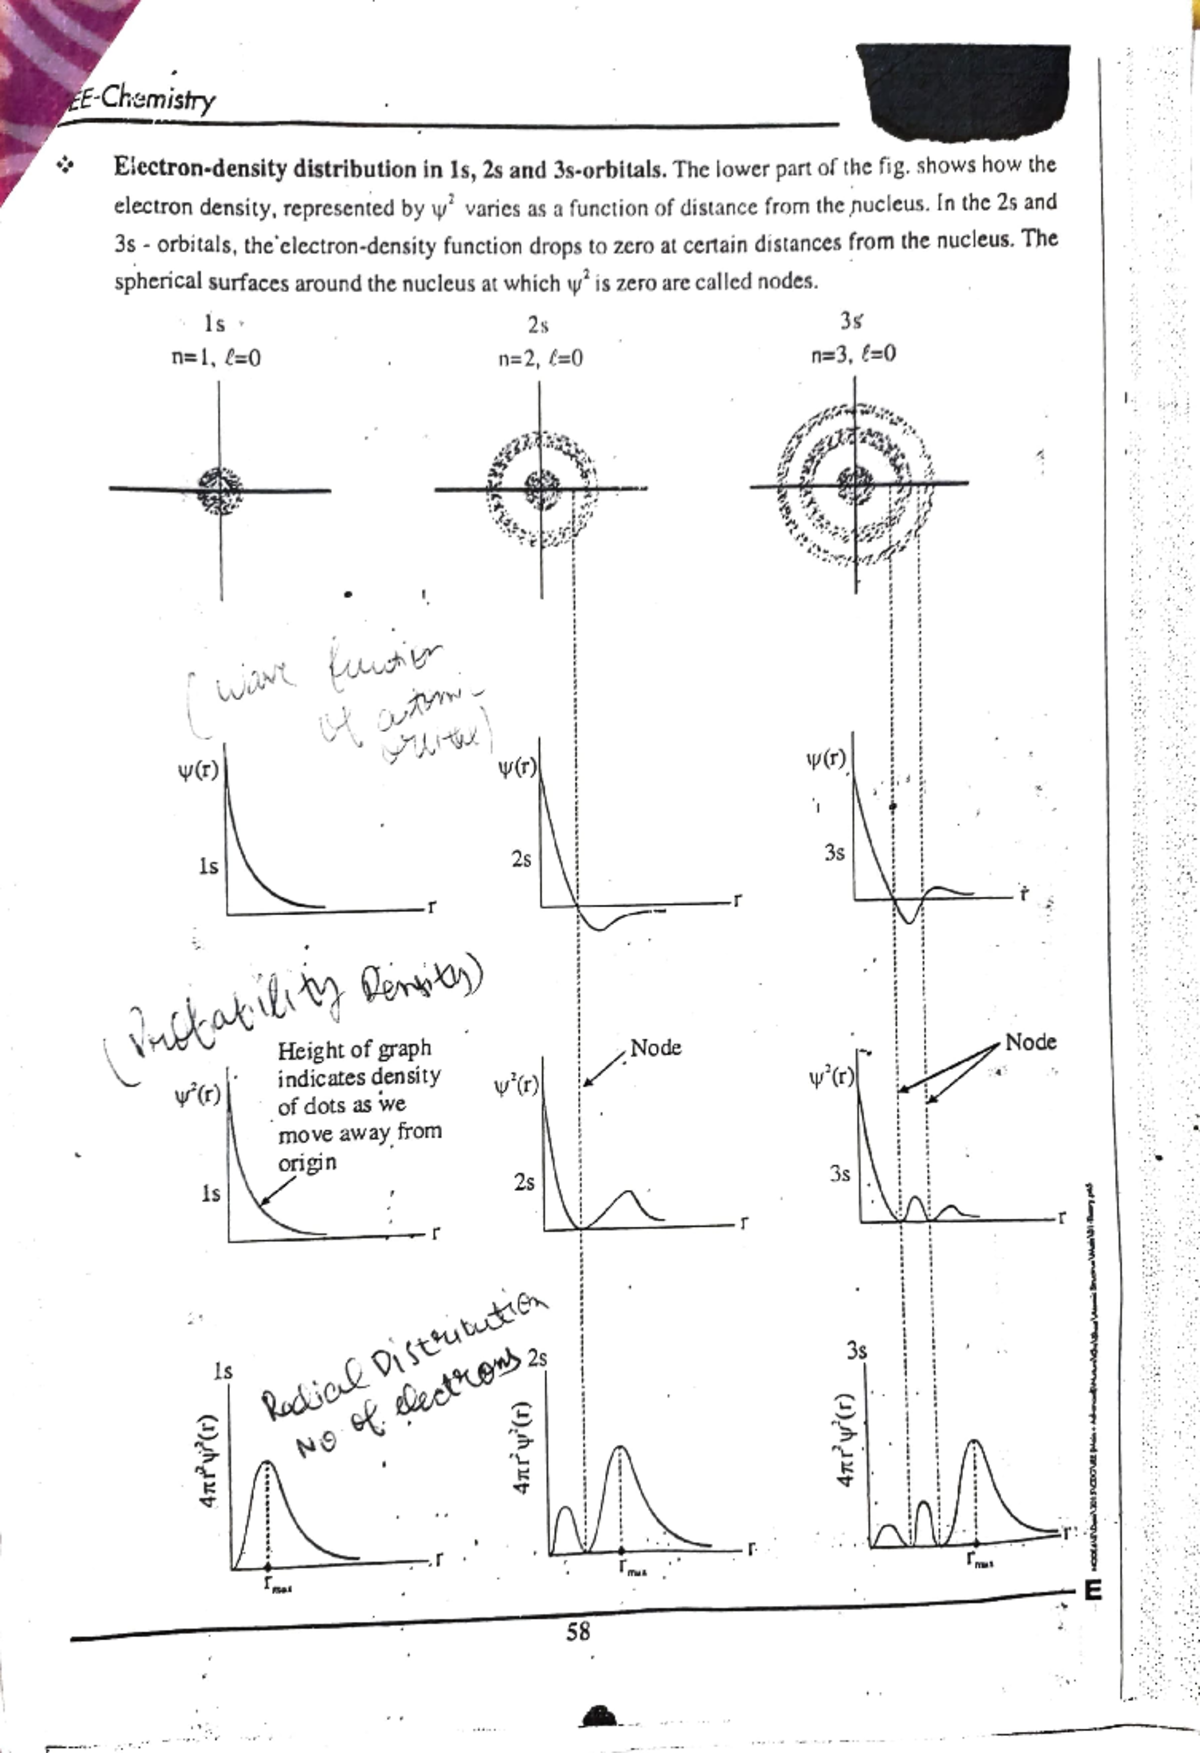 EE-Chemistry
❖ Electron-density distribution in 1s, 2s and 3s-orbitals. The lower part of the fig. shows how the
electron density, represented by ψ² varies as a function of distance from the nucleus. In the 2s and
3s - orbitals, the electron-density function drops to zero at certain distances from the nucleus. The
spherical surfaces around the nucleus at which ψ² is zero are called nodes.
1s 2s 3s
n=1, ℓ=0 n=2, ℓ=0 n=3, ℓ=0
(wave function
of atomic
orbital)
ψ(r) ψ(r) ψ(r)
1s 2s 3s
r r r
(Probability Density)
Height of graph
indicates density
of dots as we
move away from
origin
Node Node
ψ²(r) ψ²(r) ψ²(r)
1s 2s 3s
r r r
Radial Distribution
No of electrons
1s 2s 3s
4πr²ψ²(r) 4πr²ψ²(r) 4πr²ψ²(r)
r r r
rmax rmax rmax
E
58